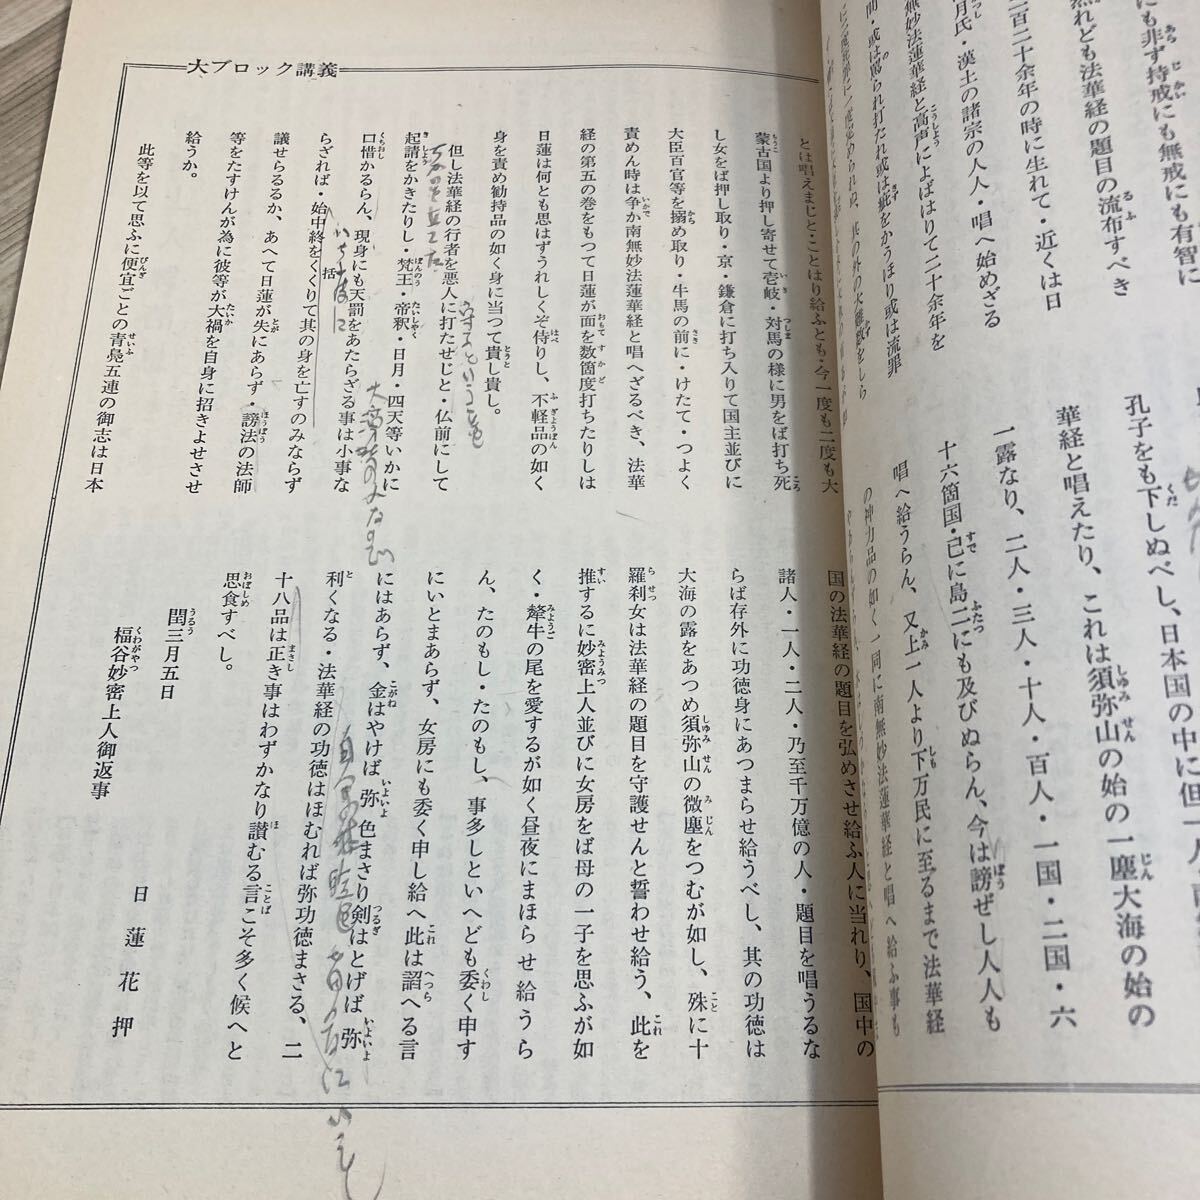 にも非ず持戒にも無戒にも有智に
れども法華経の題目の流布すべき
二百二十余年の時に生れて・近くは日
月氏・漢土の諸宗の人人・唱へ始めざる
無妙法蓮華経と高声によばはりて二十余年を
間・或は罵られ打たれ或は疵をかうほり或は流罪
孔子をも下しぬべし、日本国の中に但一人・
華経と唱えたり、これは須弥山の始の一塵大海の始の
一露なり、二人・三人・十人・百人・一国・二国・六
十六箇国・已に島二にも及びぬらん、今は謗ぜし人人も
唱へ給うらん、又上一人より下万民に至るまで法華経
の神力品の如く一同に南無妙法蓮華経と唱へ給ふ事も
大ブロック講義
とは唱えまじと・ことはり給ふとも・今一度も二度も大
蒙古国より押し寄せて壱岐・対馬の様に男をば打ち死
し女をば押し取り・京・鎌倉に打ち入りて国主並びに
大臣百官等を搦め取り・牛馬の前に・けたて・つよく
責めん時は争か南無妙法蓮華経と唱へざるべき、法華
経の第五の巻をもつて日蓮が面を数箇度打ちたりしは
日蓮は何とも思はずうれしくぞ侍りし、不軽品の如く
身を責め勧持品の如く身に当つて貴し貴し。
但し法華経の行者を悪人に打たせじと・仏前にして
起請をかきたりし・梵王・帝釈・日月・四天等いかに
口惜かるらん、現身にも天罰をあたらざる事は小事な
らざれば・始中終をくくりて其の身を亡すのみならず
括
議せらるるか、あへて日蓮が失にあらず・謗法の法師
等をたすけんが為に彼等が大禍を自身に招きよせさせ
給うか。
此等を以て思ふに便宜ごとの青鳧五連の御志は日本
国の法華経の題目を弘めさせ給ふ人に当れり、国中の
諸人・一人・二人・乃至千万億の人・題目を唱うるな
らば存外に功徳身にあつまらせ給うべし、其の功徳は
大海の露をあつめ須弥山の微塵をつむが如し、殊に十
羅刹女は法華経の題目を守護せんと誓わせ給う、此を
推するに妙密上人並びに女房をば母の一子を思ふが如
く・犛牛の尾を愛するが如く昼夜にまほらせ給うら
ん、たのもし・たのもし、事多しといへども委く申す
にいとまあらず、女房にも委く申し給へ此は諂へる言
にはあらず、金はやけば弥色まさり剣はとげば弥
利くなる・法華経の功徳はほむれば弥功徳まさる、二
十八品は正き事はわずかなり讃むる言こそ多く候へと
思食すべし。
閏三月五日
日蓮花押
楅谷妙密上人御返事